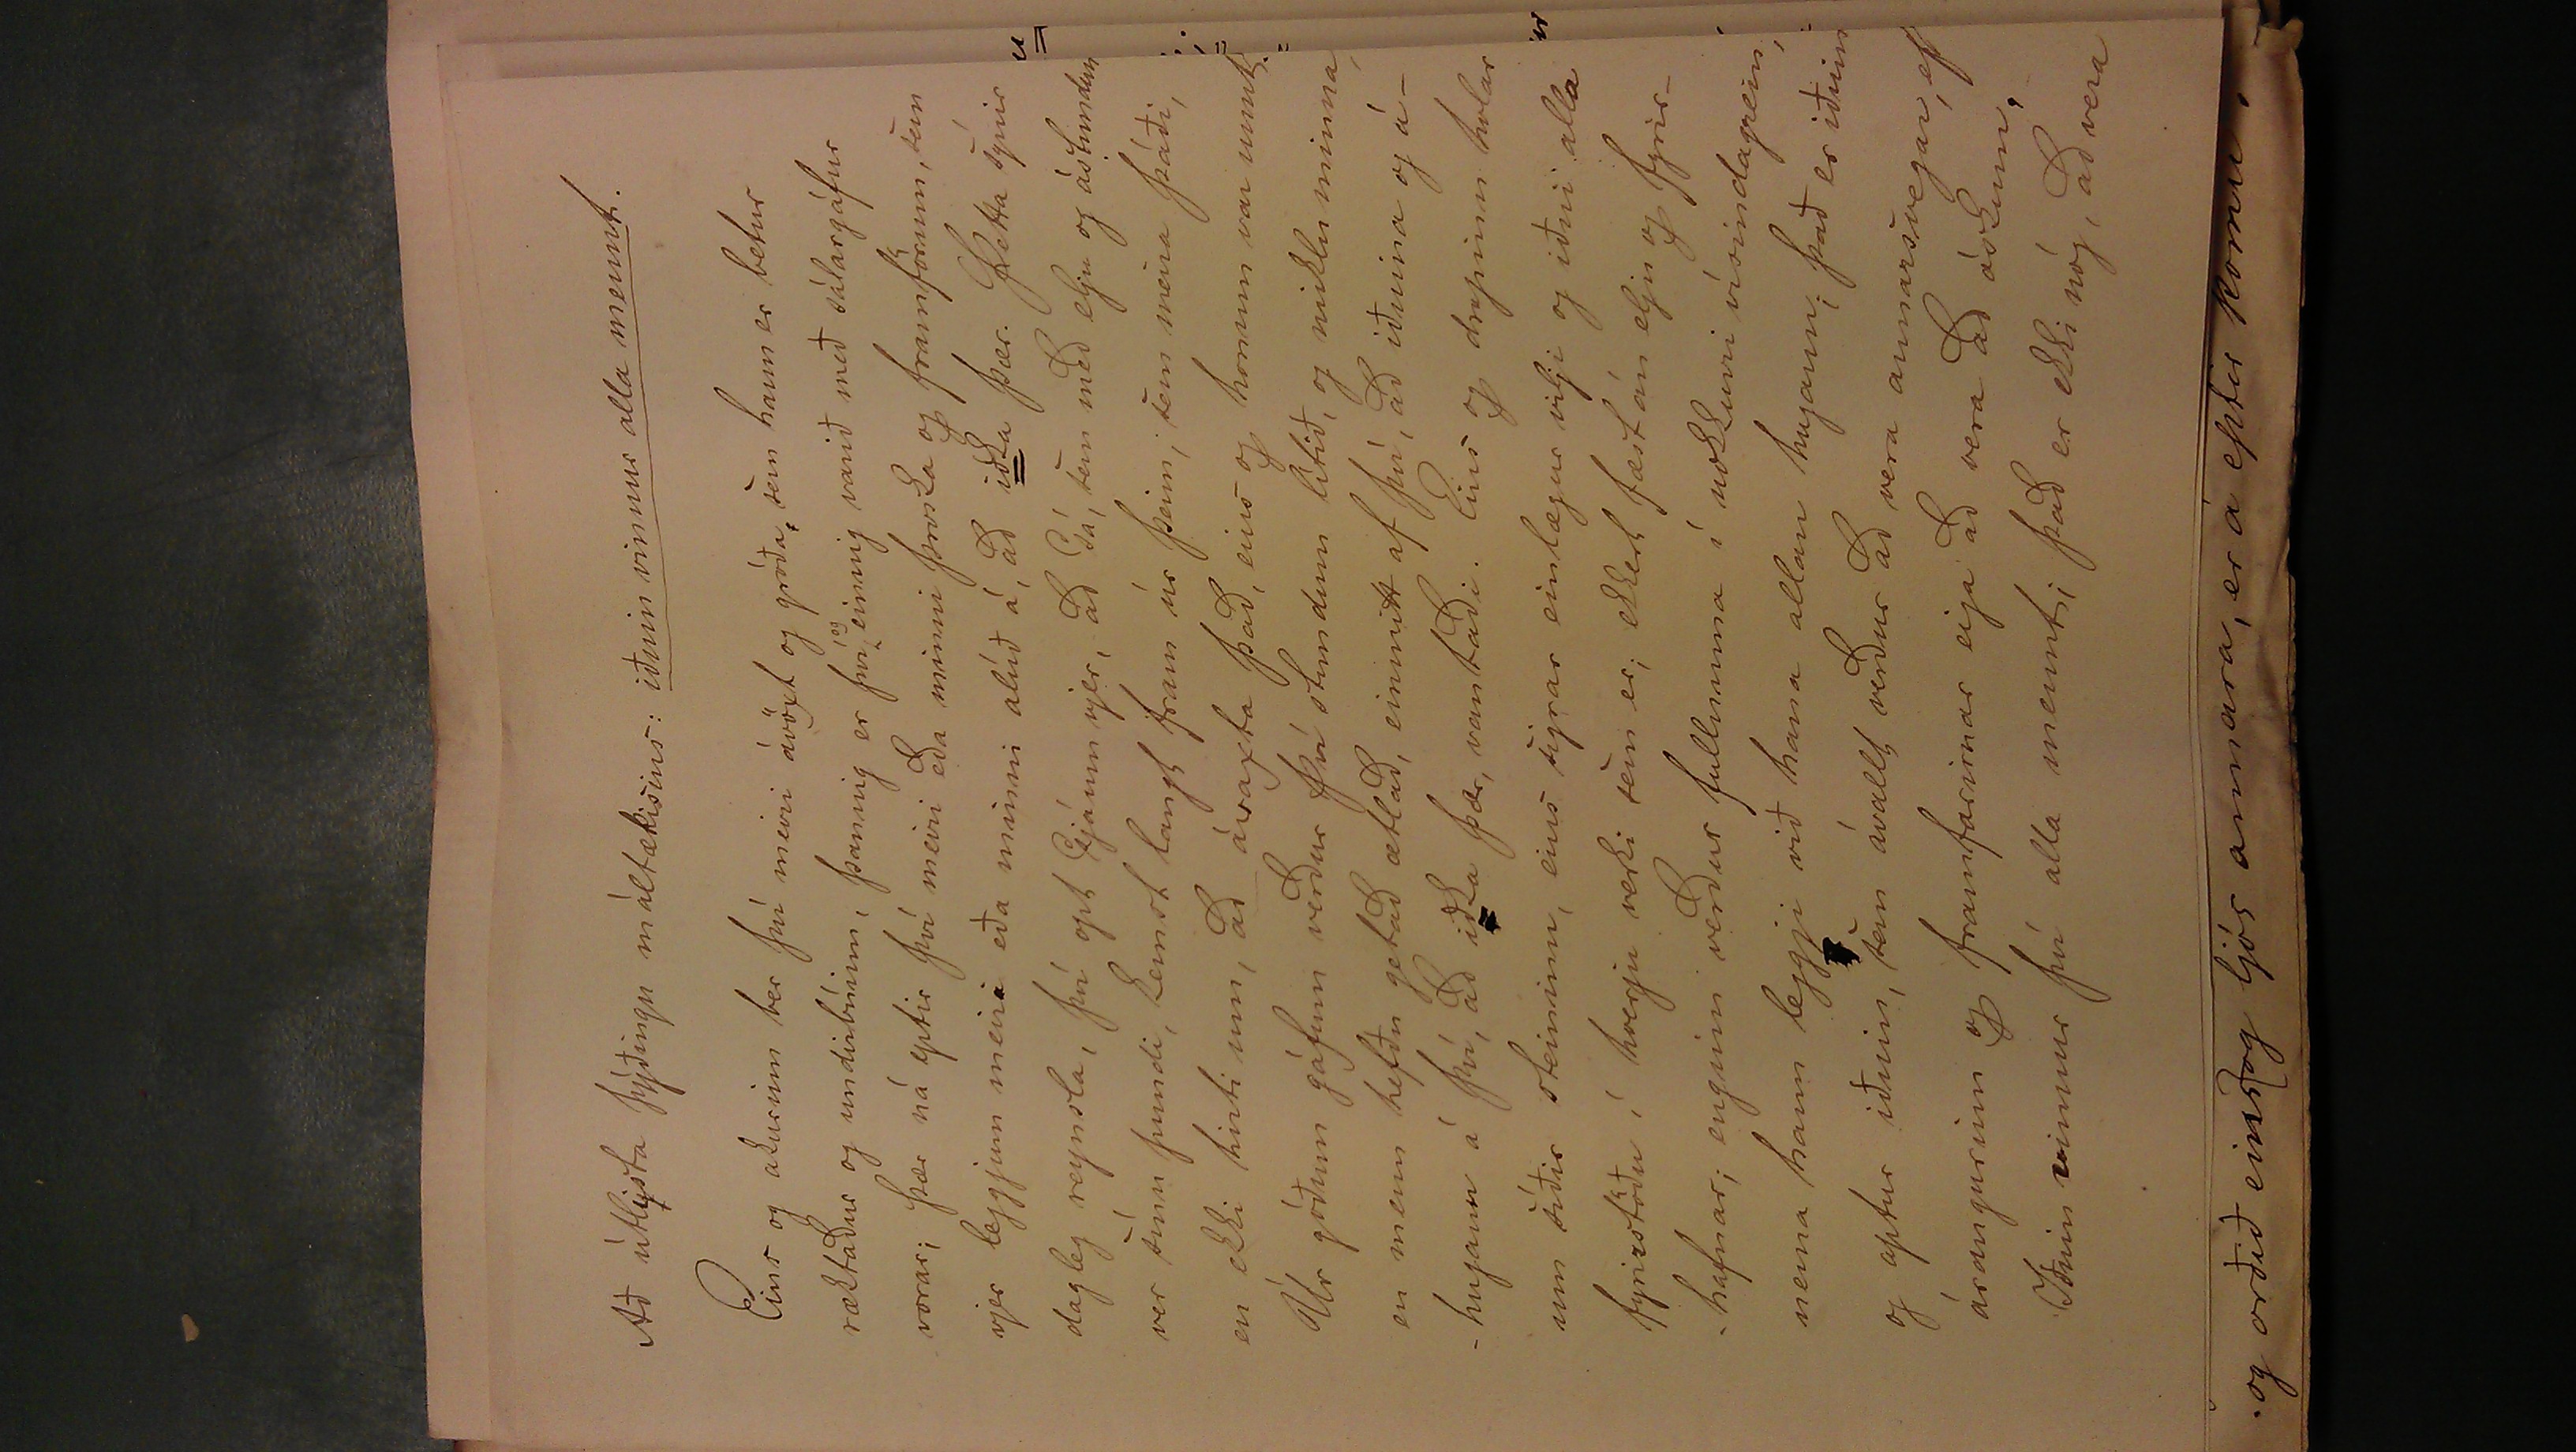 Að útlista þýðingu máltækisins: iðnin vinnur alla mennt.
Eins og akurinn ber því meiri ávöxt og gróða, sem hann er betur
ræktaður og undirbúinn, þannig er því og einnig varið með sálargáfur
vorar; þær ná eptir því meiri eða minni þroska og framförum, sem
vjer leggjum meiri eða minni alúð á, að iðka þær. Þetta sýnir
dagleg reynsla, því opt sjáum vjer, að sá, sem með elju og ástundun
ver sínu pundi, kemst langt fram úr þeim, sem meira þáði,
en ekki hirti um, að ávaxta það, eins og honum var unnt.
Úr góðum gáfum verður því stundum lítið, og miklu minna,
en menn hefðu getað ætlað, einmitt af því, að iðnina og á-
-hugann á því, að iðka þær, vantaði. Eins og dropinn holar
um síðir steininn, eins sigrar einlægur vilji og iðni alla
fyrirstöðu í hverju verki sem er; ekkert fæst án elju og fyrir-
-hafnar; enginn verður fullnuma í nokkurri vísindagrein,
nema hann leggi við hana allan hugann; það er iðnin
og aptur iðnin, sem ávallt verður að vera annarsvegar, ef
árangurinn og framfarirnar eiga að vera að óskum.
Iðnin vinnur því alla mennt; það er ekki nóg, að vera
og orðið eins og ljós annara, er á eptir komu.